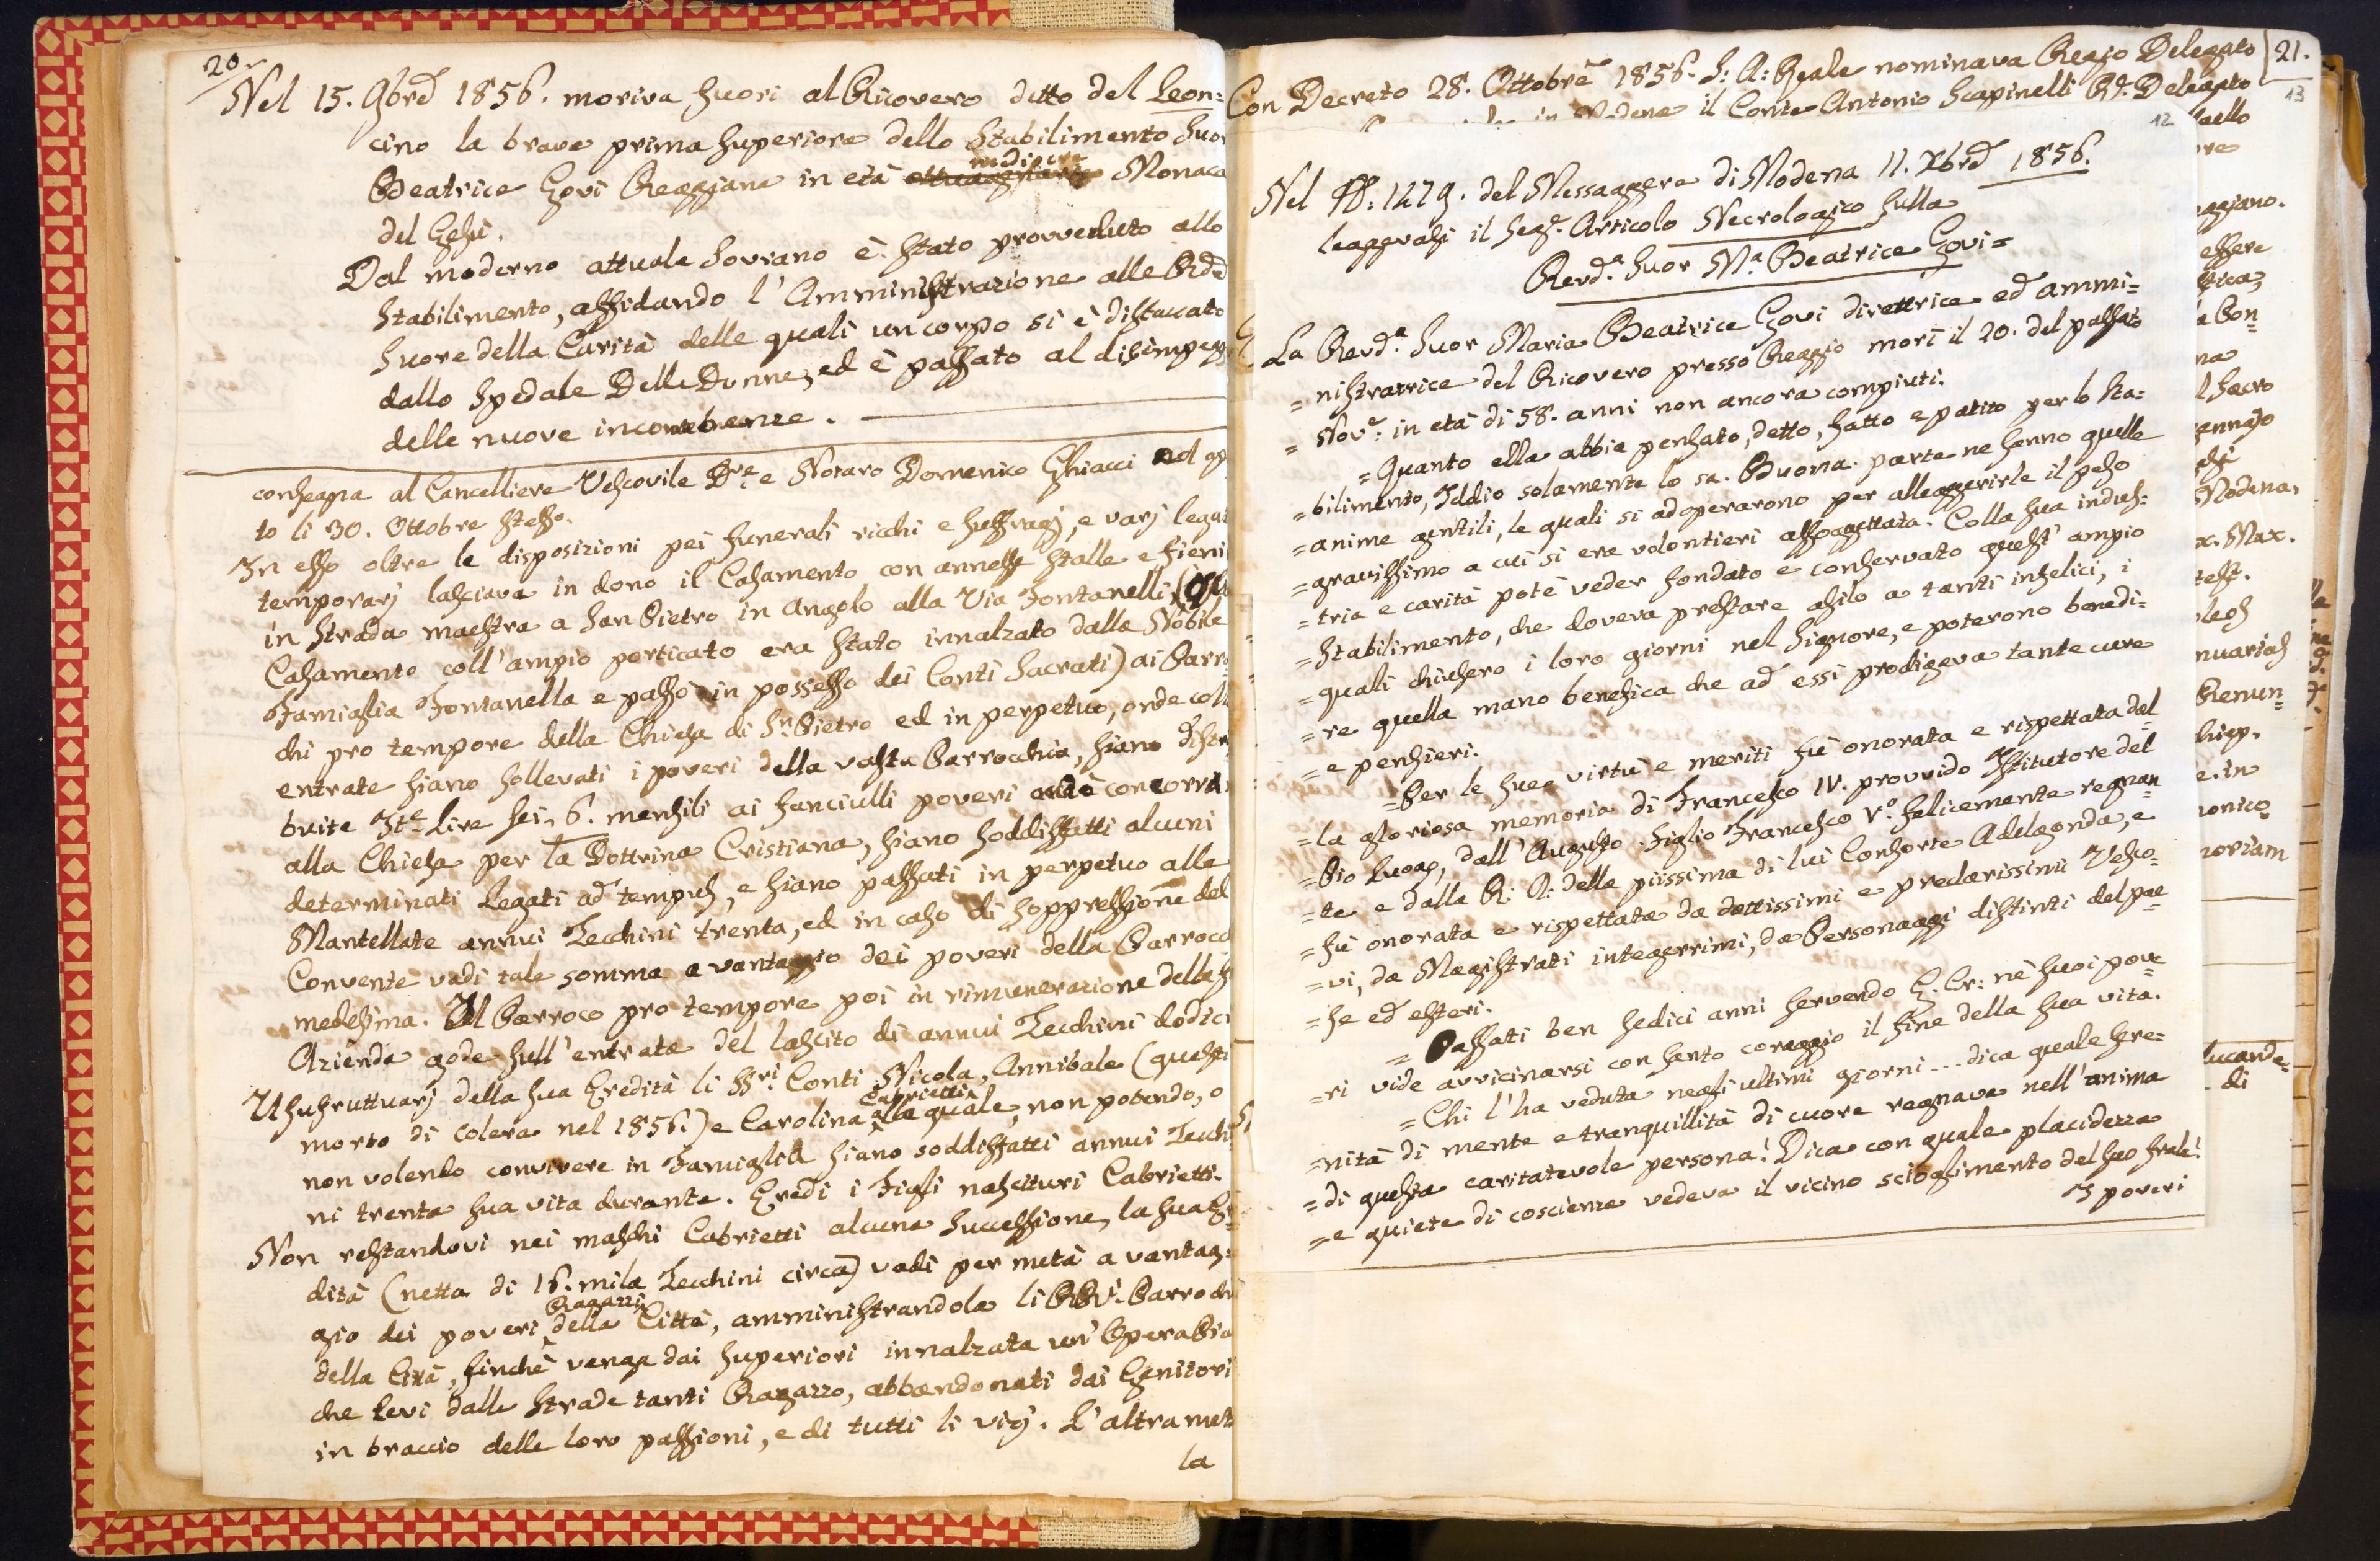 20.
Nel 15. 9bre 1856. moriva fuori al Ricovero detto del Leon=
cino la brava prima Superiora dello Stabilimento Suor
Beatrice Govi Reggiana in età mediocre Monaca
del Gesù.
Dal moderno attuale Sovrano è stato provveduto allo
Stabilimento, affidando l'Amministrazione alle Rde
Suore della Carità delle quali un corpo si è distaccato
dallo Spedale Delle Donne, ed è passato al disimpegno
delle nuove incombenze.
consegna al Cancelliere Vescovile Dre e Notaro Domenico Ghiacci
to li 30. Ottobre stesso.
In esso oltre le disposizioni pei funerali ricchi e suffragj, e varj legati
temporarj lasciava in dono il Casamento con annesse stalle e fieni
in Strada maestra a San Pietro in angolo alla Via Fontanelli,
Casamento coll'ampio porticato era stato innalzato dalla Nobile
Famiglia Fontanella e passò in possesso dei Conti Sacrati) ai Parro
chi pro tempore della Chiesa di Sn Pietro ed in perpetuo, onde coll
entrate siano sollevati i poveri della vasta Parrocchia, siano distri
buite Ite Lire sei. 6. mensili ai fanciulli poveri
alla Chiesa per la Dottrina Cristiana, siano soddisfatti alcuni
determinati Legati ad tempus, e siano passati in perpetuo alle
Mantellate annui Zecchini trenta, ed in caso di soppressione del
Convente vadi tale somma a vantaggio dei poveri della Parrocc
medesima. Il Parroco pro tempore poi in rimunerazione della
Azienda gode sull'entrata del lascito di annui Zecchini dodici
Usufruttuarj della sua Eredità li SSri Conti Nicola, Annibale (questi
morto di colera nel 1856) e Carolina Cabrietti alla quale, non potendo, o
non volendo convivere in Famiglia siano soddisfatti annui Zecchi
ni trenta sua vita durante. Eredi i Figli nascituri Cabrietti.
Non restandovi nei maschi Cabrietti alcuna Successione, la sua E
dità (netta di 16. mila Zecchini circa) vadi per metà a vantag=
gio dei poveri Ragazzi della Città, amministrandola li RRi Parrochi
della Città, finchè venga dai Superiori innalzata un'Opera Pia
che levi dalle Strade tanti Ragazzo, abbandonati dai Genitori
in braccio delle loro passioni, e di tutti li vizj. L'altra metà
la
21.
13
Con Decreto 28. Ottobre 1856. S: A: Reale nominava Regio Delegato
in Modena il Conte Antonio Scapinelli Rd. Delegato
12
Nel N: 1279. del Messaggere di Modena 11. Xbre 1856.
leggevasi il segte Articolo Necrologico sulla
Revda Suor Ma Beatrice Govi=
La Revda Suor Maria Beatrice Govi direttrice ed ammi=
=nistratrice del Ricovero presso Reggio morì il 20. del passato
= Nove: in età di 58. anni non ancora compiuti.
=Quanto ella abbia pensato, detto, fatto e patito per lo Sta=
=bilimento, Iddio solamente lo sa. Buona parte ne sanno quelle
=anime gentili, le quali si adoperarono per alleggerirle il peso
=gravissimo a cui si era volontieri assoggettata. Colla sua indus=
=tria e carità potè veder fondato e conservato quest'ampio
=Stabilimento, che doveva prestare asilo a tanti infelici, i
=quali chiusero i loro giorni nel Signore, e poterono benedi=
=re quella mano benefica che ad essi prodigava tante cure
=e pensieri.
=Per le sue virtù e meriti fù onorata e rispettata dal
=la gloriosa memoria di Francesco IV. provvido Istitutore del
=Pio Luogo, dall'Augusto Figlio Francesco V.° felicemente regnan
=te e dalla R: A: della piissima di lui Consorte Adelgonda, e
=fù onorata e rispettata da dottissimi e preclarissimi Vesco=
=vi, da Magistrati integerrimi, da Personaggi distinti del pae
=se ed esteri.
= Passati ben sedici anni servendo G: Cr: nè suoi pove
=ri vide avvicinarsi con santo coraggio il fine della sua vita.
=Chi l'ha veduta negli ultimi giorni... dica quale sere=
=nità di mente e tranquillità di cuore regnava nell'anima
=di questa caritatevole persona! Dica con quale placidezza
=e quiete di coscienza vedeva il vicino scioglimento del suo frale!
I poveri
ggiano.
essere
l Sacro
ennajo
Modena.
x. Max.
test.
nuarias
Renun=
e. in
onico=
moriam
lucande=
di